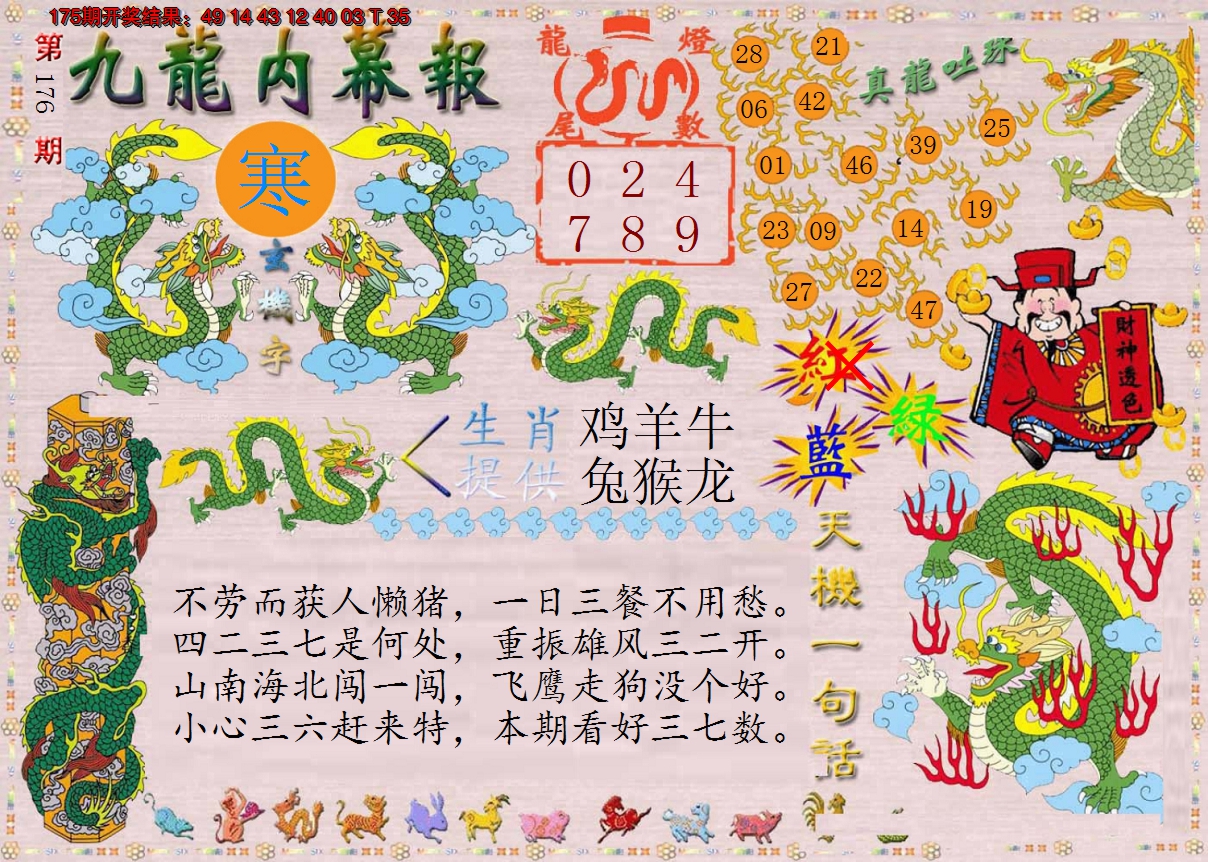 175期开奖结果：49 14 43 12 40 03 T 35
第176期
九龍内幕報
寒
玄機字
龍燈
尾數
0 2 4
7 8 9
真龍吐珠
28
21
06
42
39
25
01
46
23
09
14
19
27
22
47
財神透色
紅
綠
藍
生肖
提供
鸡羊牛
兔猴龙
天機一句话
不劳而获人懒猪，一日三餐不用愁。
四二三七是何处，重振雄风三二开。
山南海北闯一闯，飞鹰走狗没个好。
小心三六赶来特，本期看好三七数。